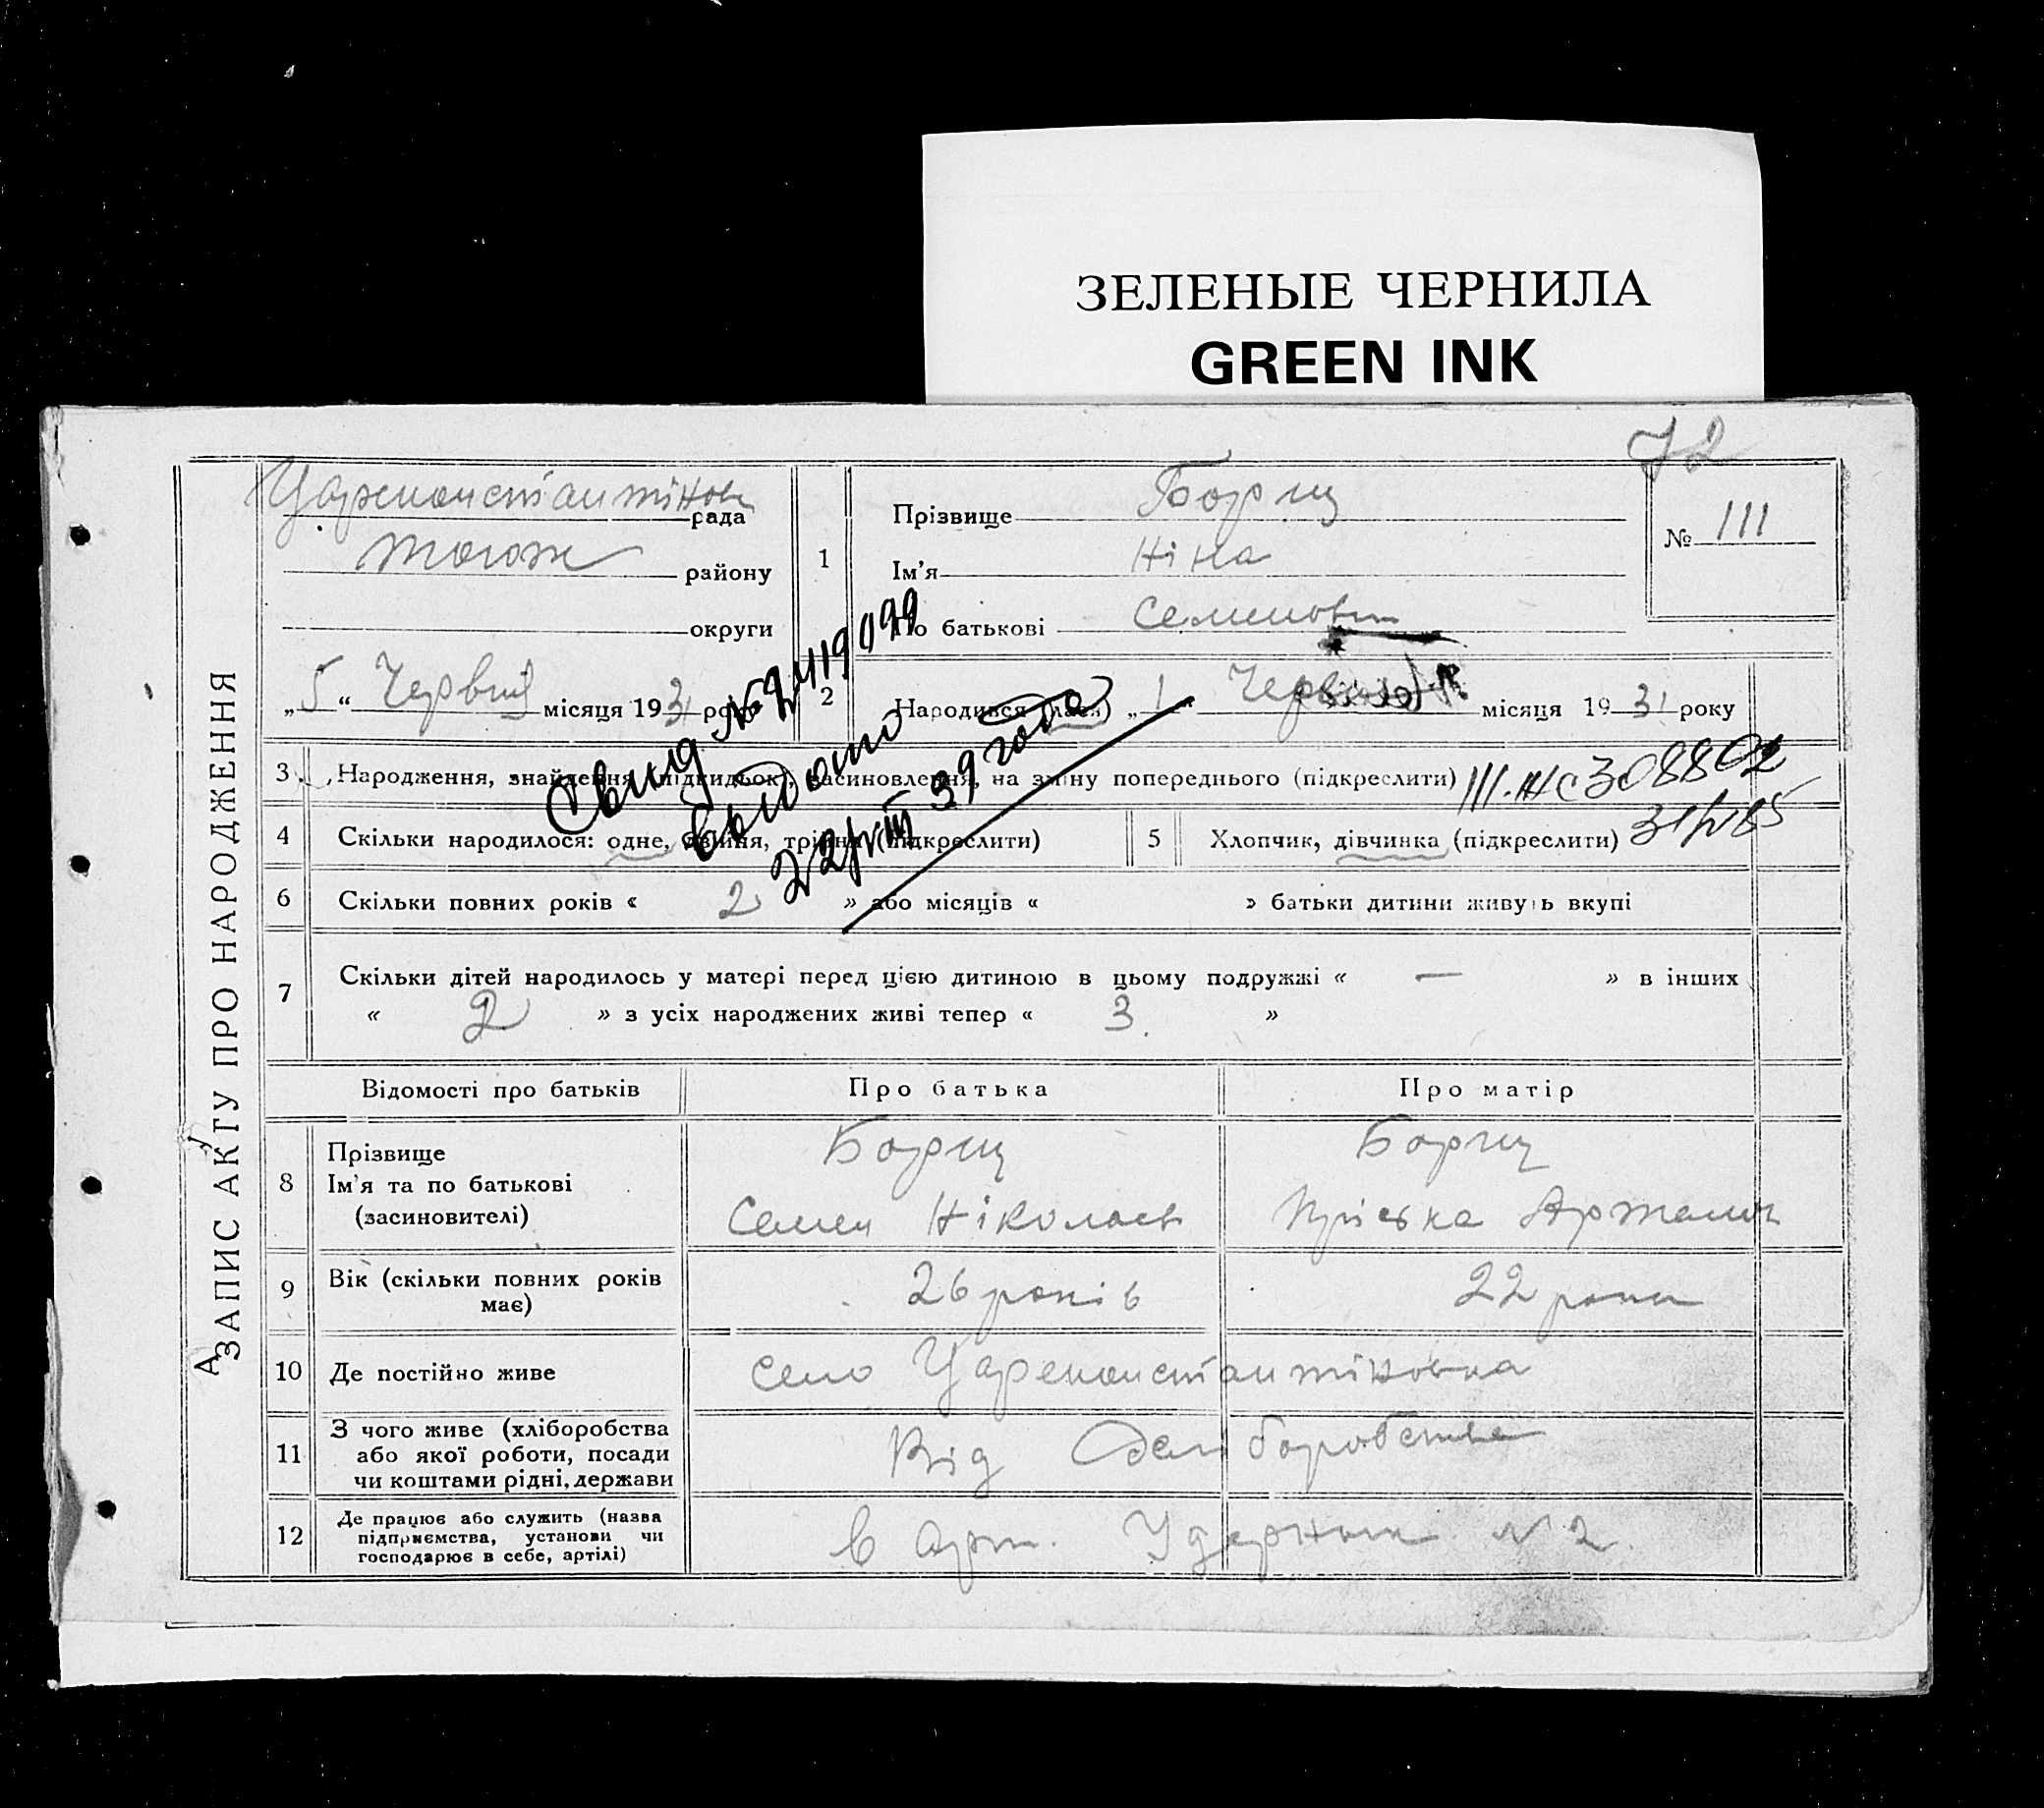 ЗЕЛЕНЫЕ ЧЕРНИЛА
GREEN INK
72
А ЗАПИС АКТУ ПРО НАРОДЖЕННЯ
Царекон­стантінов рада
району
округи
„5“ Червня місяця 1931 року
1
Прізвище Борщ
Ім'я Ніна
По батькові Семенов
№ 111
2
Народився (лася) „1“ Червня місяця 1931 року
Свид №2419099
выдано
22/VIII 39 года
3 Народження, знайдення (підкидьок), засиновлення, на зміну попереднього (підкреслити)
III-ЖС 308802
4 Скільки народилося: одне, двійня, трійня (підкреслити)
5 Хлопчик, дівчинка (підкреслити)
6 Скільки повних років « 2 » або місяців « » батьки дитини живуть вкупі
7 Скільки дітей народилось у матері перед цією дитиною в цьому подружжі « — » в інших
« 2 » з усіх народжених живі тепер « 3 »
Відомості про батьків Про батька Про матір
8 Прізвище
Ім'я та по батькові
(засиновителі)
Борщ
Семен Ніколаєв
Борщ
Пріська
9 Вік (скільки повних років
має)
26 років
22 роки
10 Де постійно живе
село Цареконстантіновка
11 З чого живе (хліборобства
або якої роботи, посади
чи коштами рідні, держави
Від
12 Де працює або служить (назва
підприємства, установи чи
господарює в себе, артілі)
в арт. Ударник №2.